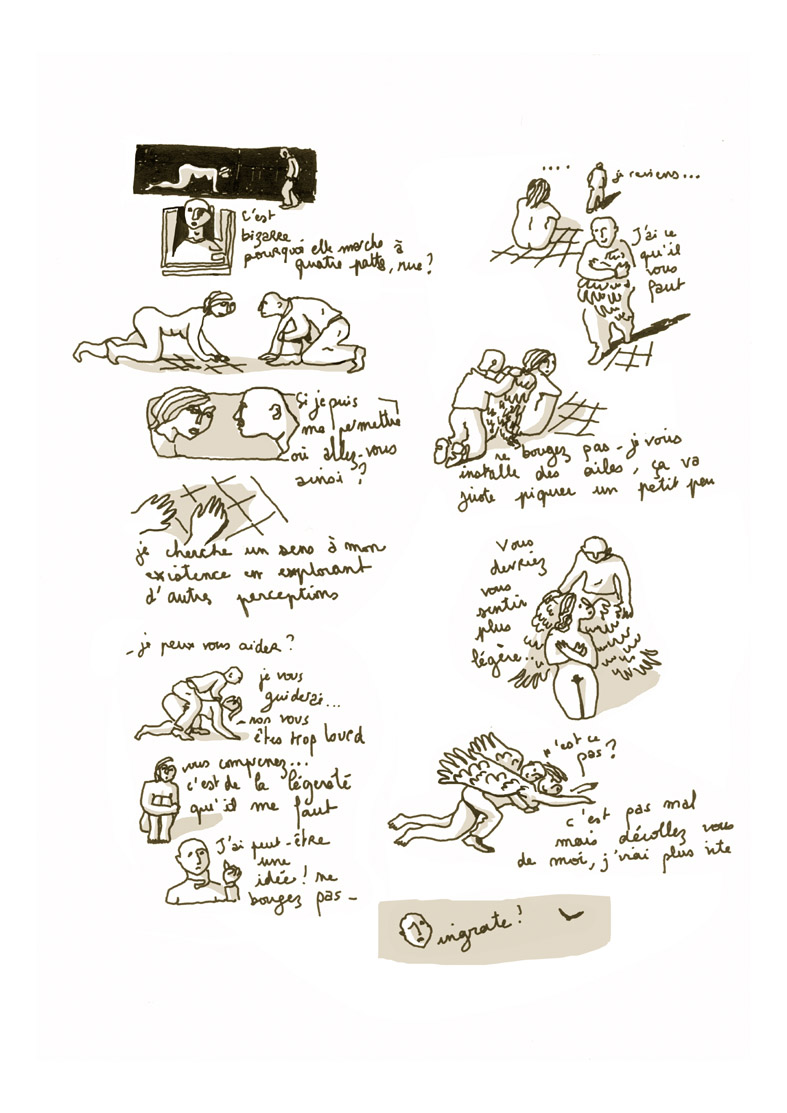 c'est
bizarre
pourquoi elle marche à
quatre patte, nue?
Si je puis
me permettre
où allez-vous
ainsi?
je cherche un sens à mon
existence en explorant
d'autres perceptions
- je peux vous aider?
je vous
guiderai...
- non vous
êtes trop lourd
vous comprenez...
c'est de la légèreté
qu'il me faut
J'ai peut-être
une
idée! ne
bougez pas -
....
je reviens...
J'ai ce
qu'il
vous
faut
ne bougez pas - je vous
installe des ailes, ça va
juste piquer un petit peu
Vous
devriez
vous
sentir
plus
légère...
n'est ce
pas?
c'est pas mal
mais décollez vous
de moi, j'irai plus vite
ingrate!